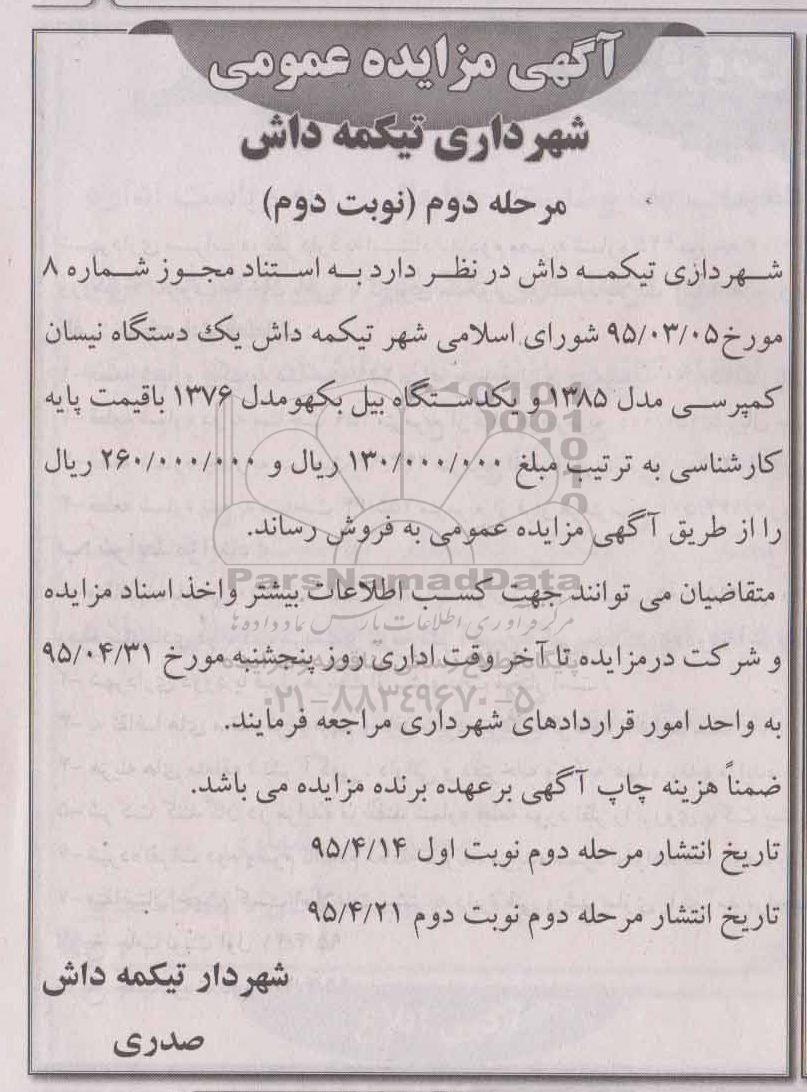 آگهی مزایده عمومی
شهرداری تیکمه داش
مرحله دوم (نوبت دوم)
شهرداری تیکمه داش در نظر دارد به استناد مجوز شماره ۸
مورخ۹۵/۰۳/۰۵ شورای اسلامی شهر تیکمه داش یک دستگاه نیسان
کمپرسی مدل ۱۳۸۵ و یکدستگاه بیل بکهومدل ۱۳۷۶ باقیمت پایه
کارشناسی به ترتیب مبلغ ۱۳۰/۰۰۰/۰۰۰ ریال و ۲۶۰/۰۰۰/۰۰۰ ریال
را از طریق آگهی مزایده عمومی به فروش رساند.
متقاضیان می توانند جهت کسب اطلاعات بیشتر واخذ اسناد مزایده
و شرکت درمزایده تا آخر وقت اداری روز پنجشنبه مورخ ۹۵/۰۴/۳۱
به واحد امور قراردادهای شهرداری مراجعه فرمایند.
ضمناً هزینه چاپ آگهی برعهده برنده مزایده می باشد.
تاریخ انتشار مرحله دوم نوبت اول ۹۵/۴/۱۴
تاریخ انتشار مرحله دوم نوبت دوم ۹۵/۴/۲۱
شهردار تیکمه داش
صدری
ParsNamadData
مرکز فرآوری اطلاعات پارس نماد داده ها
۰۲۱-۸۸۳۴۹۶۷۰-۵